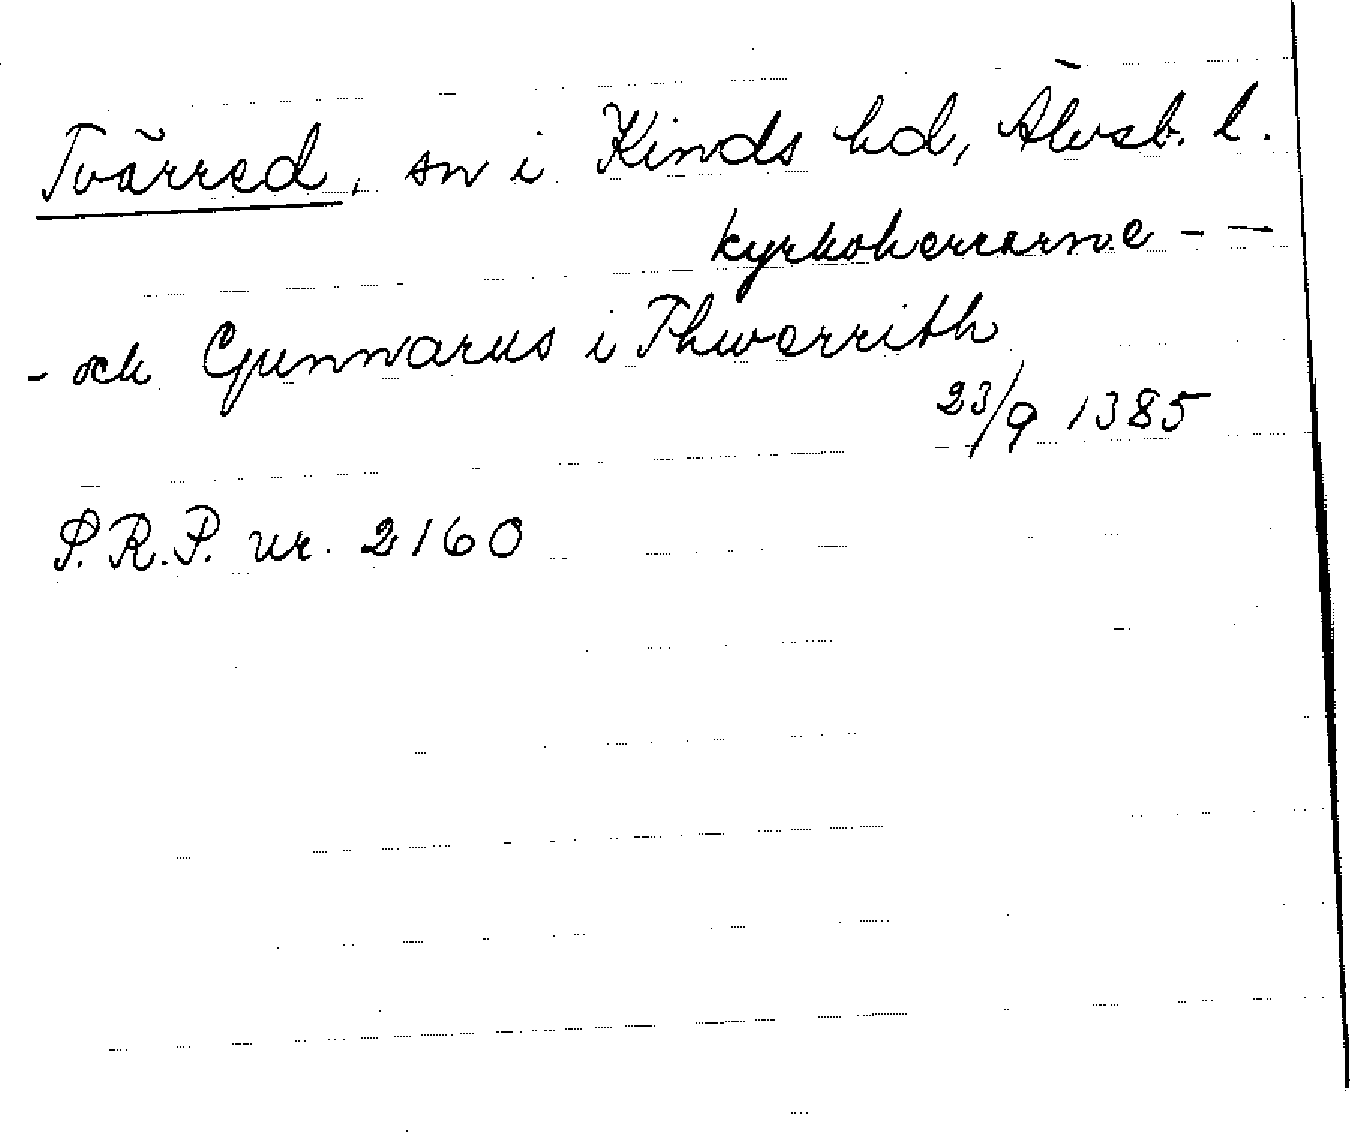 Tvärred, sn i Kinds hd, Älvsb. l.
kyrkoherrarne - -
- och Gunnarus i Thwerrith
23/9 1385
S.R.P. nr. 2160